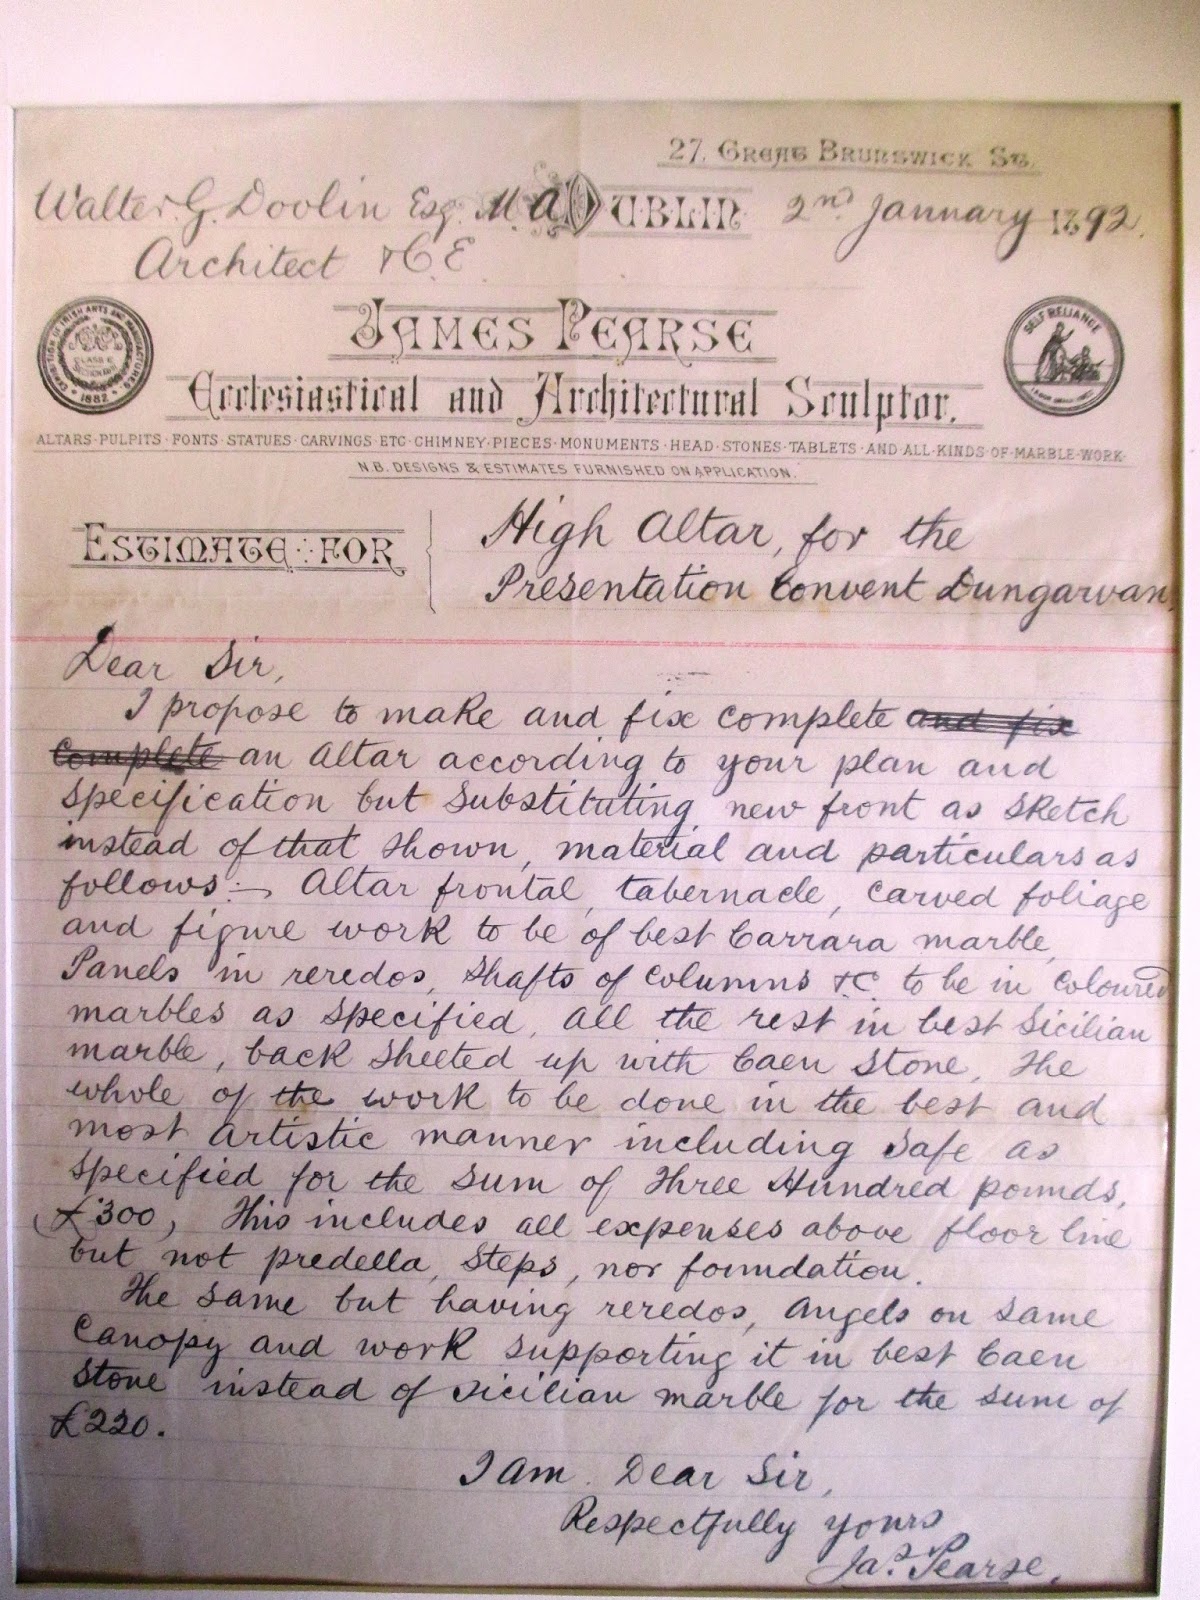 27. Great Brunswick St.
Walter G. Doolin Esq. M.A. Dublin 2nd January 1892.
Architect & C.E.
James Pearse
EXHIBITION OF IRISH ARTS AND MANUFACTURES
CLASS E
1882
SELF RELIANCE
Ecclesiastical and Architectural Sculptor.
ALTARS·PULPITS·FONTS·STATUES·CARVINGS ETC·CHIMNEY·PIECES·MONUMENTS·HEAD·STONES·TABLETS·AND·ALL·KINDS·OF·MARBLE·WORK·
N.B. DESIGNS & ESTIMATES FURNISHED ON APPLICATION.
Estimate for
High Altar, for the
Presentation Convent Dungarvan
Dear Sir,
I propose to make and fix complete and fix
complete an altar according to your plan and
specification but substituting new front as sketch
instead of that shown, material and particulars as
follows:— Altar frontal, tabernacle, carved foliage
and figure work to be of best Carrara marble,
Panels in reredos, shafts of columns &C. to be in coloured
marbles as specified, all the rest in best Sicilian
marble, back sheeted up with Caen stone, The
whole of the work to be done in the best and
most artistic manner including safe as
specified for the sum of Three Hundred pounds,
(£300, This includes all expenses above floor line
but not predella, steps, nor foundation.
The same but having reredos, angels on same
canopy and work supporting it in best Caen
stone instead of Sicilian marble for the sum of
£220.
I am Dear Sir,
Respectfully yours
Jas. Pearse.